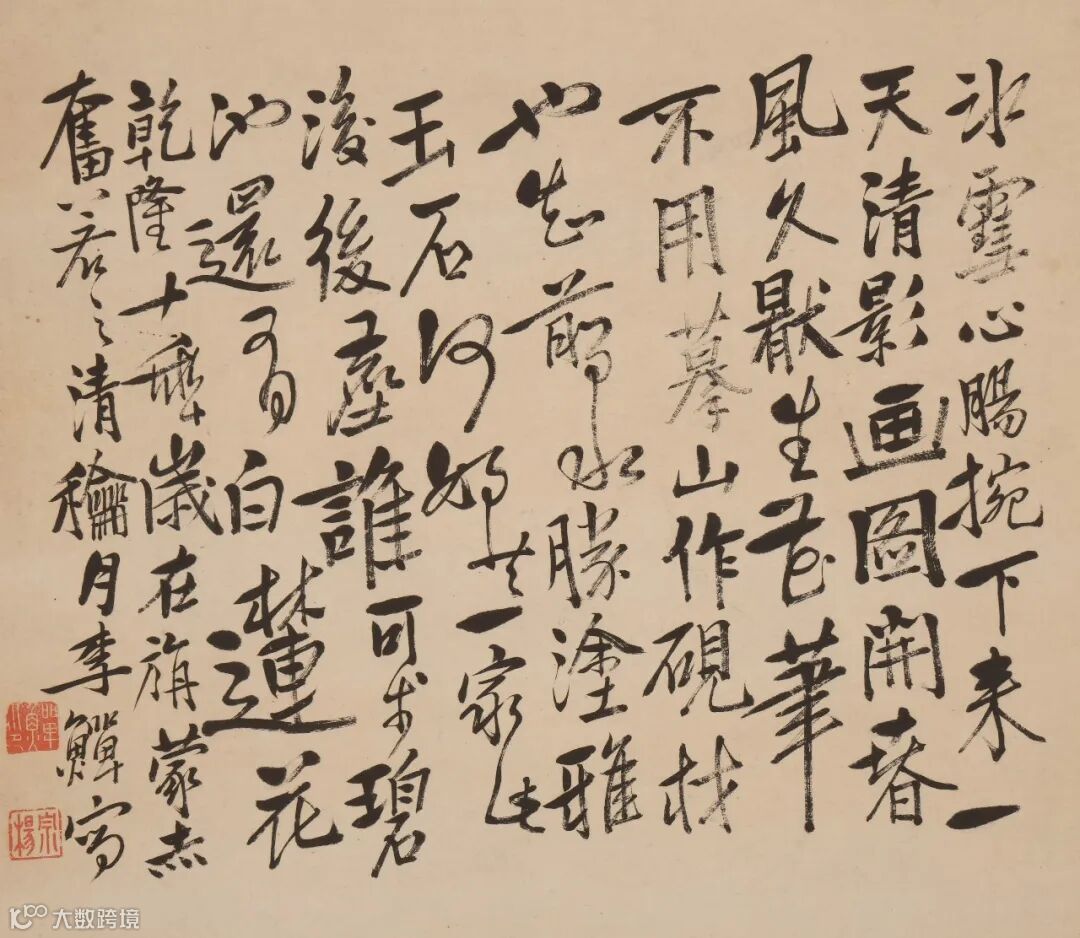 冰雪心腸捥下来一
天清影画圖開春
風久厭生花筆
不用摹山作硯材
也知前水勝塗雅
玉石何邪共一家
後塵誰可步碧
池還有白林蓮花
乾隆十季歲在旃蒙赤
奮若之清龝月李鱓寫
宗揚
大数跨境